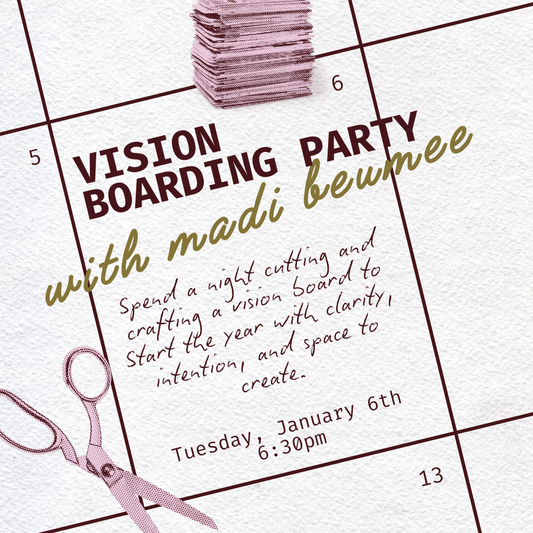 6
5
VISION
BOARDING PARTY
with madi beumee
Spend a night cutting and
crafting a vision board to
Start the year with clarity,
intention, and space to
create.
Tuesday, January 6th
6:30pm
13